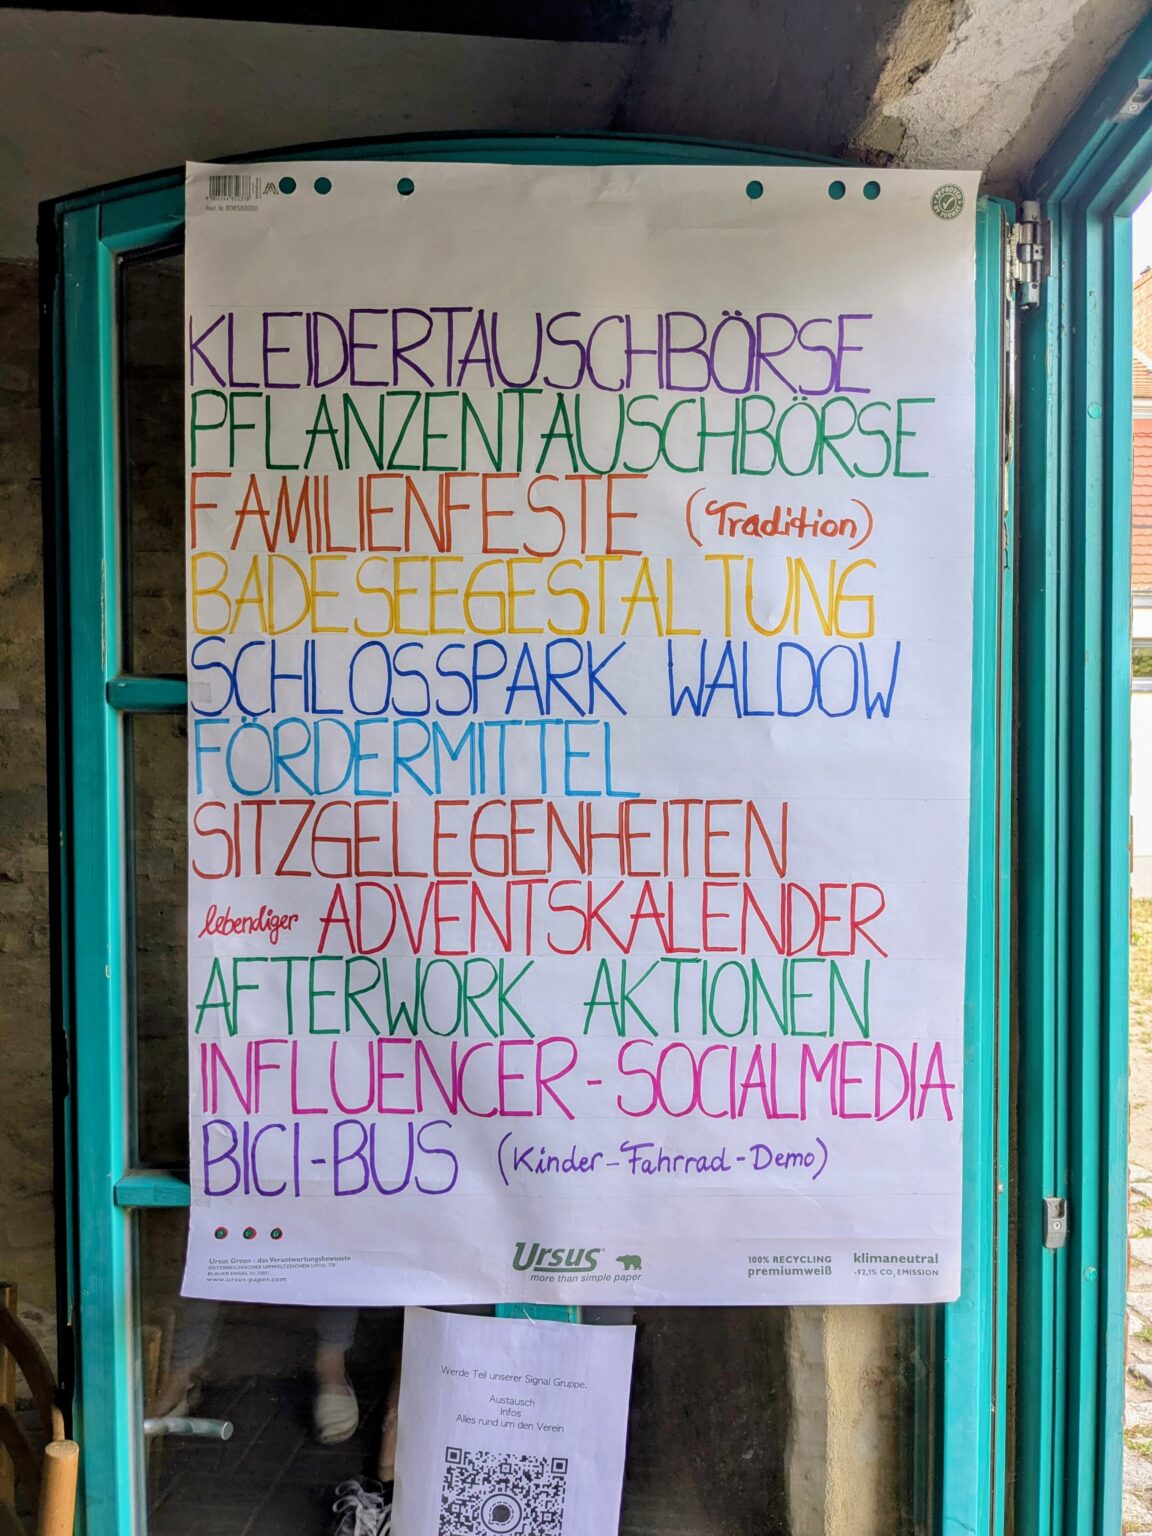 KLEIDERTAUSCHBÖRSE
PFLANZENTAUSCHBÖRSE
FAMILIENFESTE (Tradition)
BADESEEGESTALTUNG
SCHLOSSPARK WALDOW
FÖRDERMITTEL
SITZGELEGENHEITEN
lebendiger ADVENTSKALENDER
AFTERWORK AKTIONEN
INFLUENCER-SOCIALMEDIA
BICI-BUS (Kinder-Fahrrad-Demo)
Ursus Green - das Verantwortungsbewusste
ÖSTERREICHISCHES UMWELTZEICHEN
BLAUER ENGEL
www.ursus-paper.com
Ursus
more than simple paper
100% RECYCLING
premiumweiß
klimaneutral
-92,1% CO2 EMISSION
Werde Teil unserer Signal Gruppe.
Austausch
Infos
Alles rund um den Verein